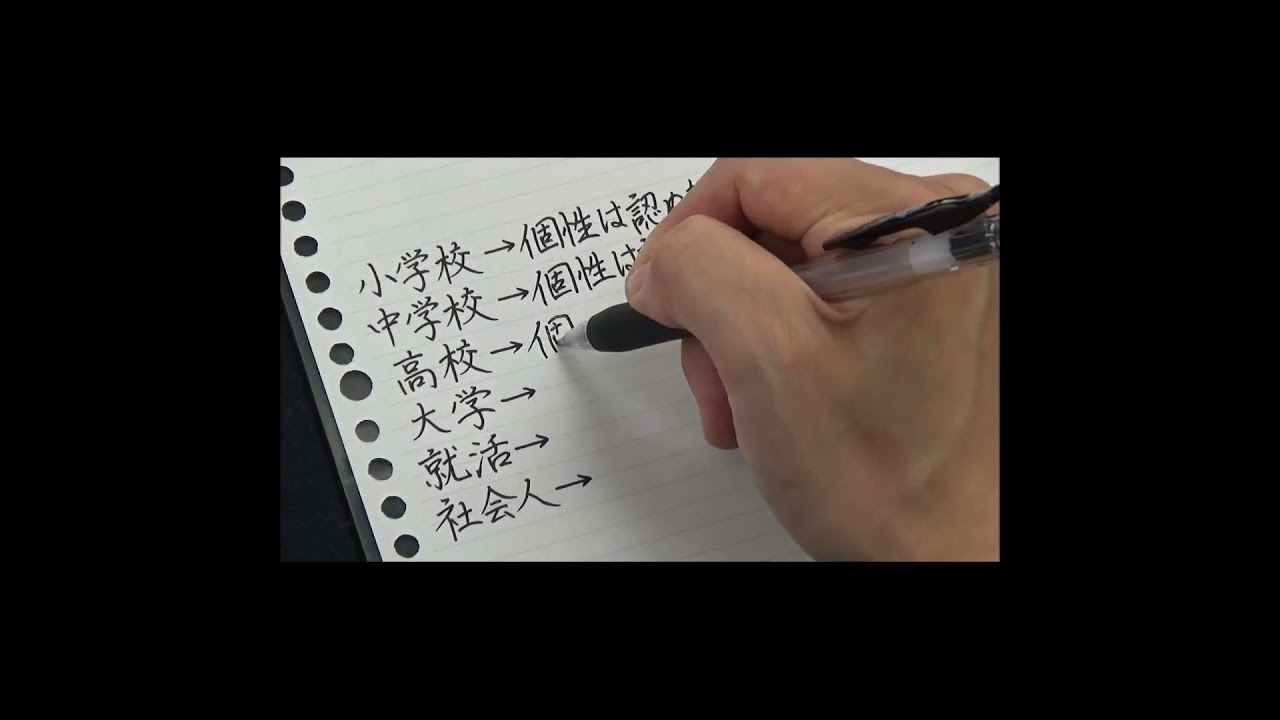 小学校→個性は認め
中学校→個性は
高校→個
大学→
就活→
社会人→